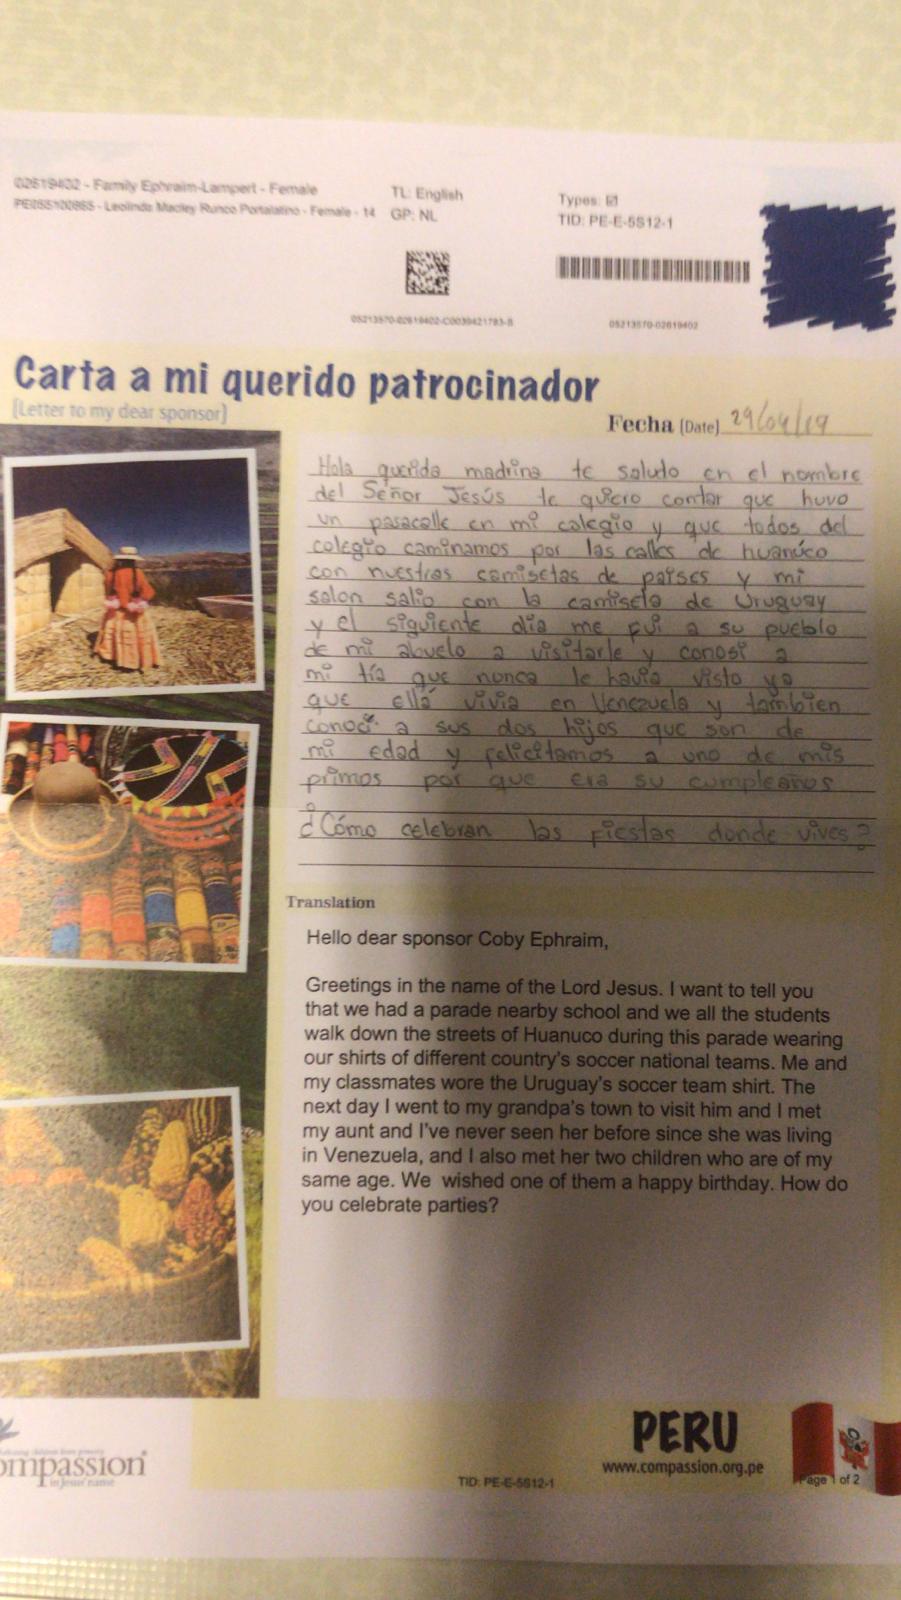 02619402 - Family Ephraim-Lampert - Female
PE055100865 - Leolinda Macley Runco Portalatino - Female - 14
TL: English
GP: NL
Types: ☑
TID: PE-E-5S12-1
05213570-02619402-C0039421783-B
05213570-02619402
Carta a mi querido patrocinador
[Letter to my dear sponsor]
Fecha (Date) 29/04/19
Hola querida madrina te saludo en el nombre
del Señor Jesús te quiero contar que huvo
un pasacalle en mi colegio y que todos del
colegio caminamos por las calles de huanúco
con nuestras camisetas de países y mi
salon salio con la camiseta de Uruguay
y el siguiente dia me fui a su pueblo
de mi abuelo a visitarle y conosi a
mi tía que nunca le havia visto ya
que ella vivia en Venezuela y tambien
conoci a sus dos hijos que son de
mi edad y felicitamos a uno de mis
primos por que era su cumpleaños
¿Cómo celebran las fiestas donde vives?
Translation
Hello dear sponsor Coby Ephraim,
Greetings in the name of the Lord Jesus. I want to tell you
that we had a parade nearby school and we all the students
walk down the streets of Huanuco during this parade wearing
our shirts of different country's soccer national teams. Me and
my classmates wore the Uruguay's soccer team shirt. The
next day I went to my grandpa's town to visit him and I met
my aunt and I've never seen her before since she was living
in Venezuela, and I also met her two children who are of my
same age. We wished one of them a happy birthday. How do
you celebrate parties?
PERU
www.compassion.org.pe
ompassion
in Jesus' name
TID: PE-E-5S12-1
Page 1 of 2